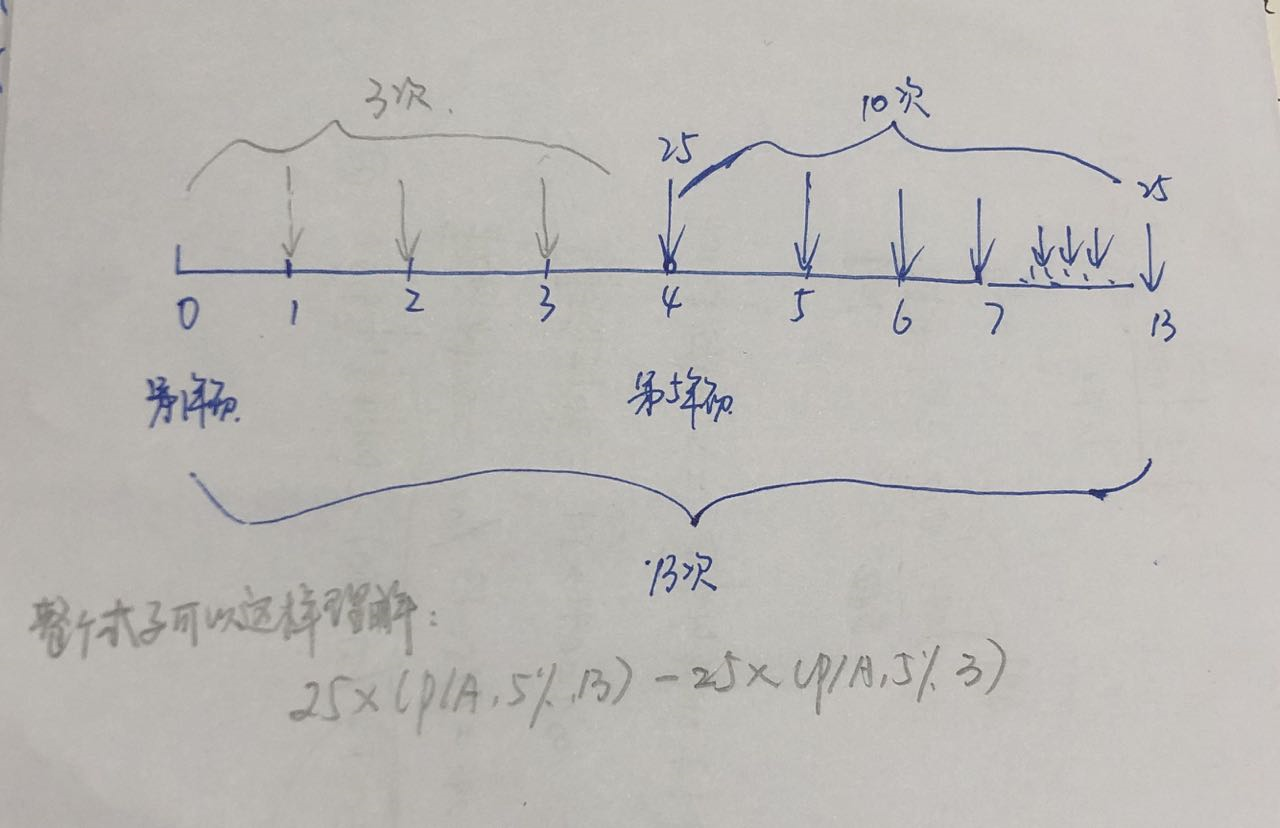 3次.
10次
25
25
0 1 2 3 4 5 6 7 13
第1年初
第5年初
13次
整个式子可以这样理解:
25×(P/A,5%,13)-25×(P/A,5%,3)